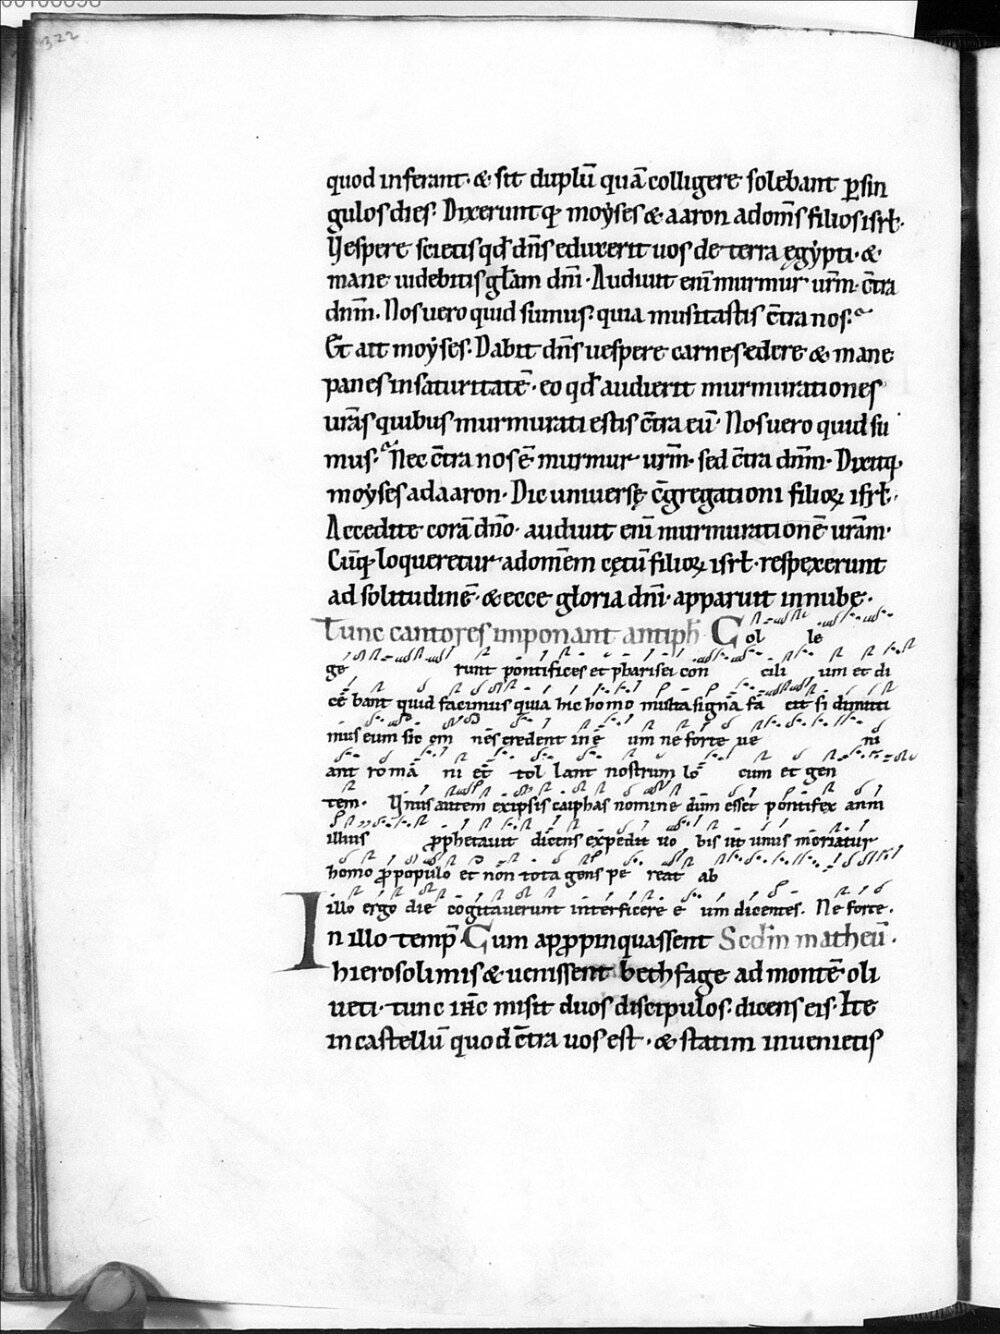 322
quod inferant· & sit duplū quā colligere solebant ꝑsin
gulos dies· Dixeruntq; moẏses & aaron ad om̄s filios isrł·
Vespere scietis qđ dn̄s eduxerit uos de terra ęgẏpti· &
mane uidebitis gł̄am dn̄i· Audiuit eni᷑ murmur ur̄m· c̄tra
dn̄m· Nos uero quid sumus· quia musitastis c̄tra nos·
Et ait moẏses· Dabit dn̄s uespere carnes edere & mane
panes in saturitatē· eo qđ audierit murmurationes
urās quibus murmurati estis c̄tra eū· Nos uero quid su
mus· Nec c̄tra nos ē murmur ur̄m· sed c̄tra dn̄m· Dixitq;
moẏses ad aaron· Dic uniuersę c̄gregationi filioꝝ isrł·
Accedite corā dn̄o· audiuit eni᷑ murmurationē urām·
Cūq; loqueretur ad om̄em cętū filioꝝ isrł· respexerunt
ad solitudinē· & ecce gloria dn̄i· apparuit in nube·
Tunc cantores imponant antiph̄ Col le
ge runt pontifices et pharisei con cili um et di
cē bant quid facimus quia hic homo multa signa fa cit si dimitti
mus eum sic om nēs credent in ē um ne forte ue ni
ant romā ni et tol lant nostrum lo cum et gen
tem· Vnus autem ex ipsis caiphas nomine dum esset pontifex anni
illius ꝓphetauit dicens expedit uo bis ut unus moriatur
homo ꝓ populo et non tota gens pe reat ab
illo ergo die cogitauerunt interficere e um dicentes· Ne forte·
In illo temp̄· Cum apꝓpinquassent Scd̄m matheū·
hierosolimis & uenissent bethfage ad montē oli
ueti· tunc ih̄c misit duos discipulos· dicens eis· Ite
in castellū quod c̄tra uos est· & statim inuenietis